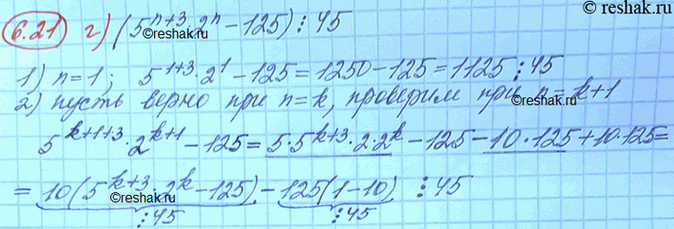 © reshak.ru
6.21 г) (5^{n+3} · 2^n − 125) ⋮ 45
1) n=1; 5^{1+3} · 2^1 − 125 = 1250 − 125 = 1125 ⋮ 45
2) пусть верно при n=k, проверим при n=k+1
5^{k+1+3} · 2^{k+1} − 125 = 5·5^{k+3} · 2·2^k − 125 − 10·125 + 10·125 =
= 10(5^{k+3} · 2^k − 125) − 125(1−10) ⋮ 45
⋮45 ⋮45
© reshak.ru